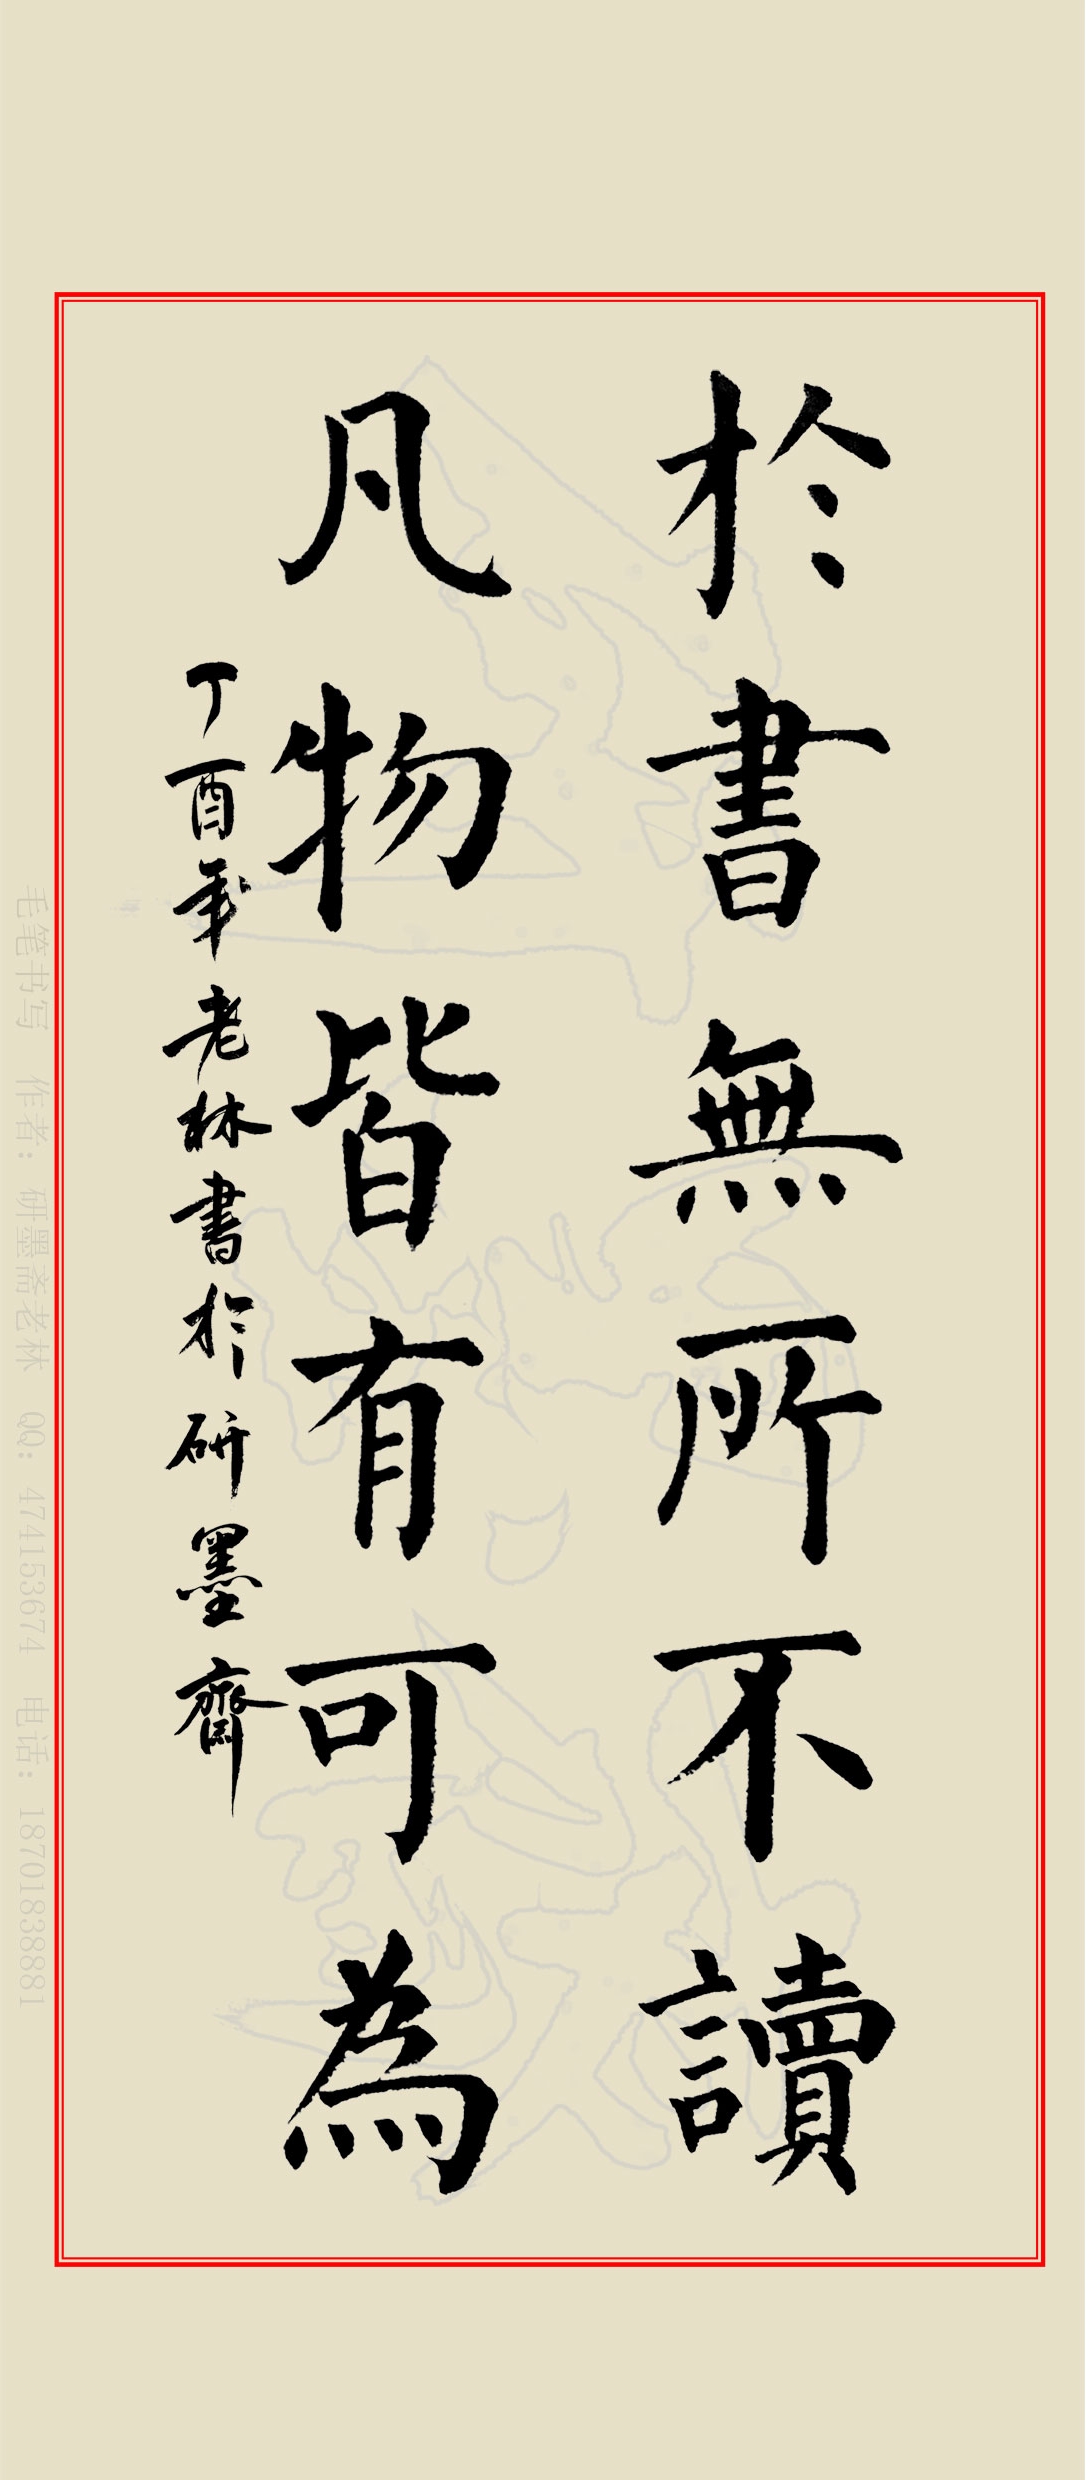 於書無所不讀
凡物皆有可為
丁酉年老林書於研墨齋
毛笔书写 作者：研墨斋老林 QQ：474153674 电话：18701838881